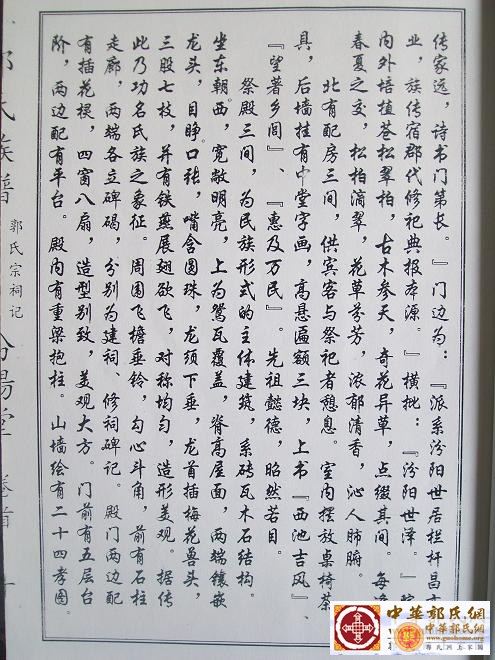 传家远，诗书门第长。』门边为：『派系汾阳世居栏杆昌
业，族传宿郡代修祀典报本源。』横批：『汾阳世泽。』
内外培植苍松翠柏，古木参天，奇花异草，点缀其间。每逢
春夏之交，松柏滴翠，花草芬芳，浓郁清香，沁人肺腑。
北有配房三间，供宾客与祭祀者憩息。室内摆放桌椅茶
具，后墙挂有中堂字画，高悬匾额三块，上书『西池吉风』
『望著乡闾』、『惠及万民』。先祖懿德，昭然若目。
祭殿三间，为民族形式的主体建筑，系砖瓦木石结构。
坐东朝西，宽敞明亮，上为鸳瓦覆盖，脊高屋面，两端镶嵌
龙头，目睁口张，嘴含圆珠，龙须下垂，龙首插梅花兽头，
三股七枝，并有铁燕展翅欲飞，对称均匀，造形美观。据传
此乃功名氏族之象征。周围飞檐垂铃，勾心斗角，前有石柱
走廊，两端各立碑碣，分别为建祠、修祠碑记。殿门两边配
有插花棂，四窗八扇，造型别致，美观大方。门前有五层台
阶，两边配有平台。殿内有重梁抱柱。山墙绘有二十四孝图。
氏族谱
郭氏宗祠记
汾阳堂
卷首
中华郭氏網
中華郭氏網
www.guohome.org